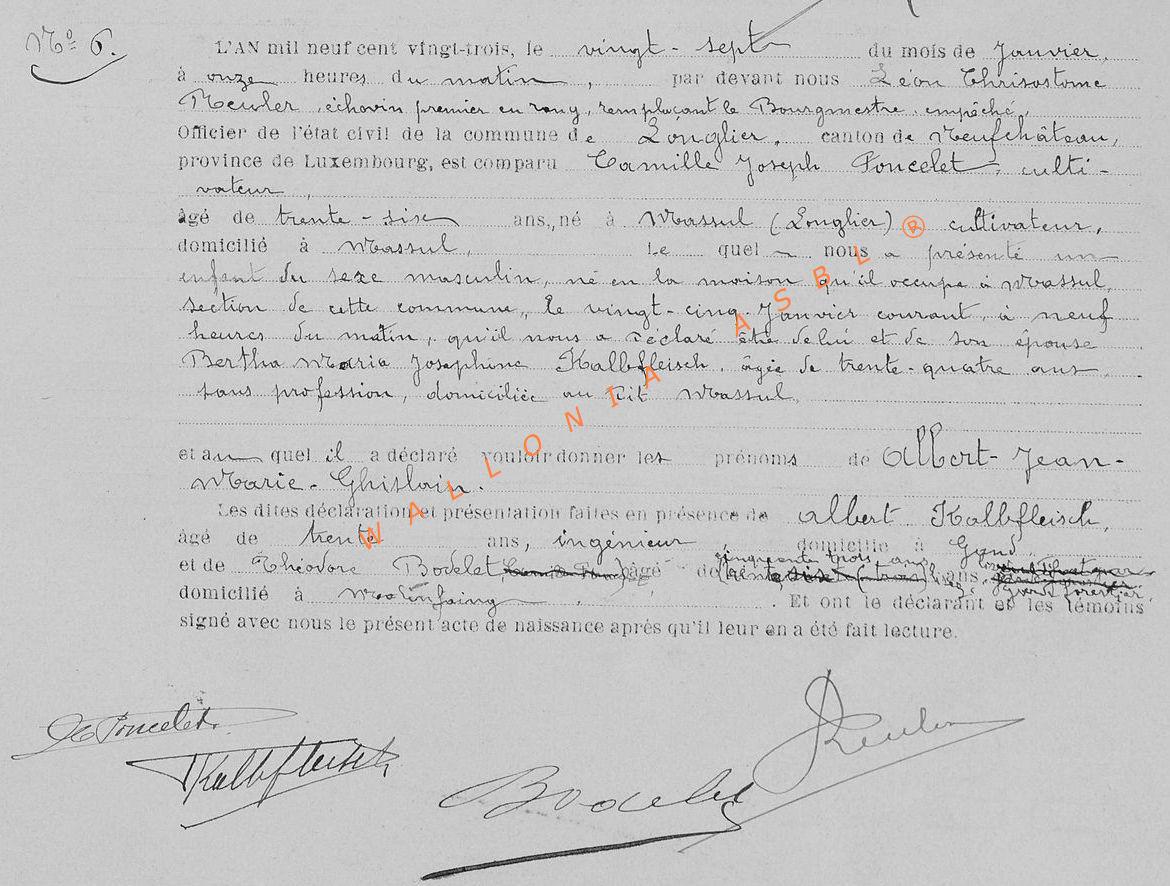 N° 6.
L'AN mil neuf cent vingt-trois, le vingt-sept du mois de Janvier,
à onze heures du matin, par devant nous Léon Chrisostome
Meuler, échevin premier en rang, remplaçant le Bourgmestre empêché,
Officier de l'état civil de la commune de Longlier, canton de Neufchâteau,
province de Luxembourg, est comparu Camille Joseph Poncelet, culti-
vateur,
âgé de trente-six ans, né à Massul (Longlier) cultivateur,
domicilié à Massul, Lequel nous a présenté un
enfant du sexe masculin, né en la maison qu'il occupe à Massul,
section de cette commune, le vingt-cinq Janvier courant, à neuf
heures du matin, qu'il nous a déclaré être de lui et de son épouse
Bertha Maria Joséphine Kalbfleisch, âgée de trente-quatre ans,
sans profession, domiciliée au dit Massul,
et auquel il a déclaré vouloir donner les prénoms de Albert-Jean-
Marie-Ghislain.
Les dites déclaration et présentation faites en présence de Albert Kalbfleisch,
âgé de trente ans, ingénieur, domicilié à Gand,
cinquante trois ans
et de Théodore Bodelet, âgé de ans,
garde forestier
domicilié à Molinfaing. Et ont le déclarant et les témoins
signé avec nous le présent acte de naissance après qu'il leur en a été fait lecture.
WALLONIA ASBL ®
Poncelet
Kalbfleisch
Bodelet